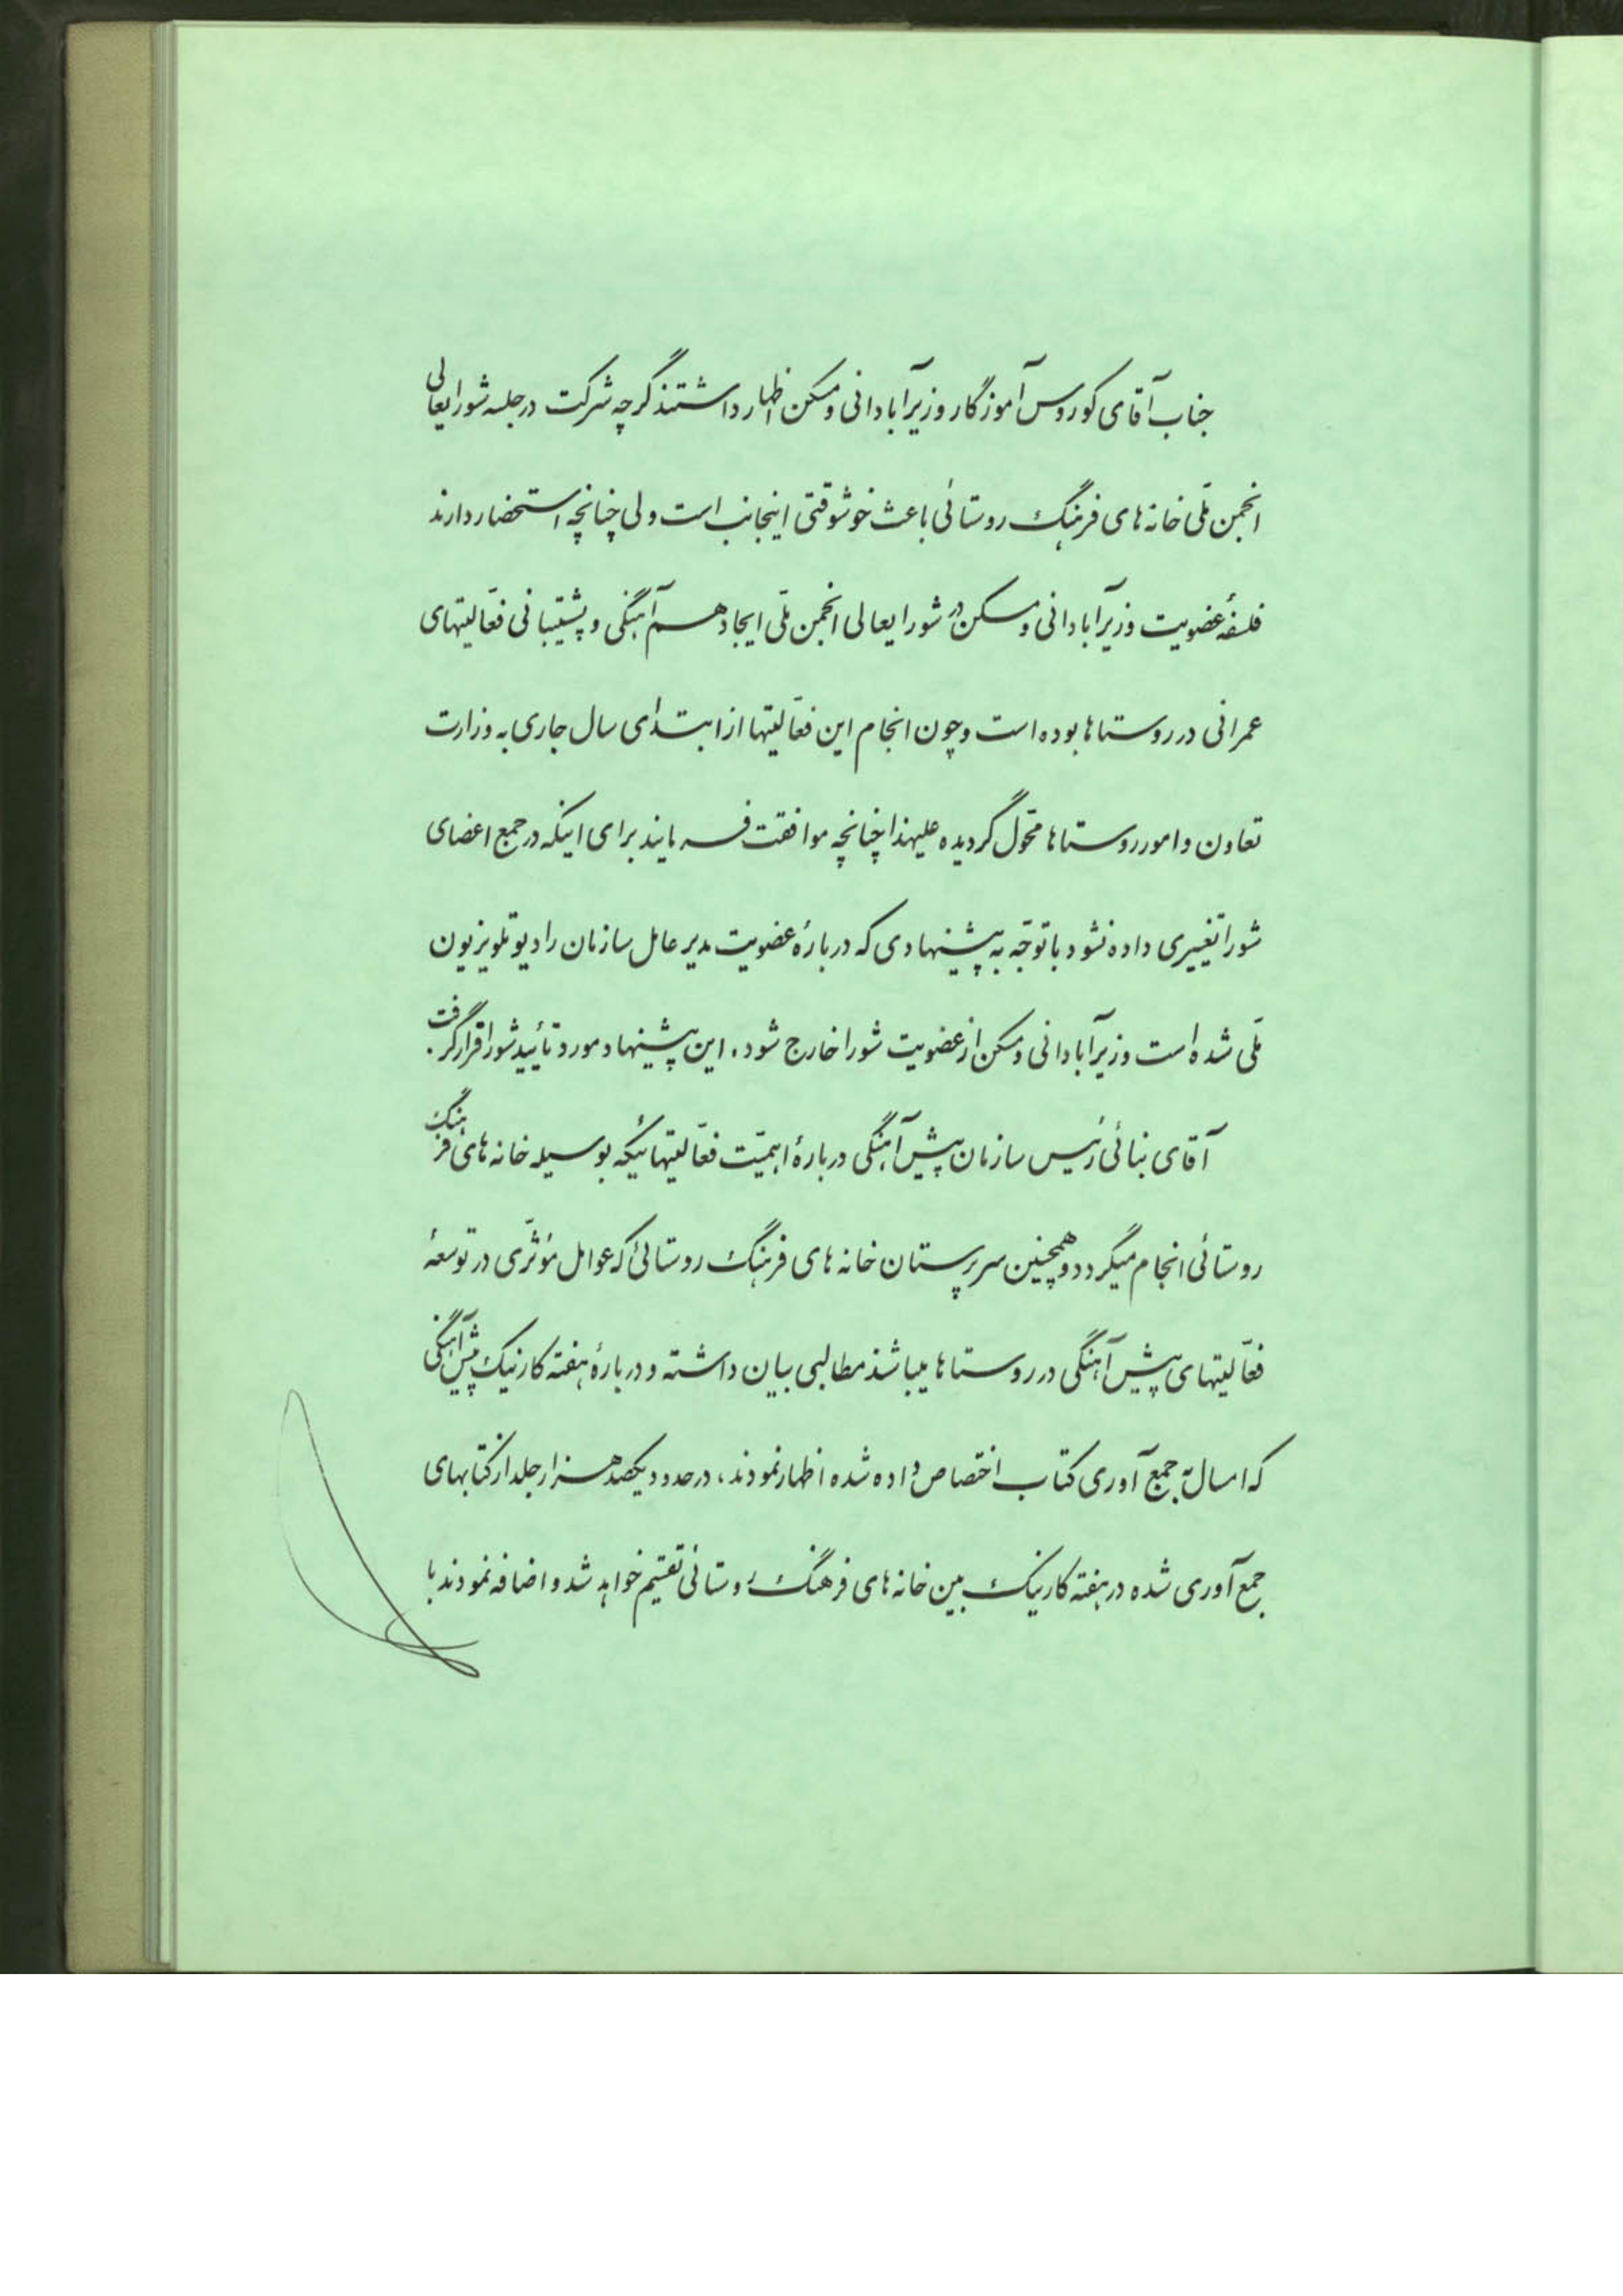 جناب آقای کوروس آموزگار وزیر آبادانی و مسکن اظهار داشتند گرچه شرکت در جلسه شورایعالی
انجمن ملّی خانه های فرهنگ روستائی باعث خوشوقتی اینجانب است ولی چنانچه استحضار دارند
فلسفهٔ عضویت وزیر آبادانی و مسکن در شورایعالی انجمن ملّی ایجاد هم آهنگی و پشتیبانی فعّالیتهای
عمرانی در روستاها بوده است و چون انجام این فعّالیتها از ابتدای سال جاری به وزارت
تعاون و امور روستاها محّول گردیده علیهذا چنانچه موافقت فرمایند برای اینکه در جمع اعضای
شورا تغییری داده نشود با توجّه به پیشنهادی که دربارهٔ عضویت مدیر عامل سازمان رادیو تلویزیون
ملّی شده است وزیر آبادانی و مسکن از عضویت شورا خارج شود. این پیشنهاد مورد تأیید شورا قرار گرفت.
آقای بنائی رئیس سازمان پیش آهنگی دربارهٔ اهمیّت فعّالیتهائیکه بوسیله خانه های فرهنگ
روستائی انجام میگردد و همچنین سرپرستان خانه های فرهنگ روستائی که عوامل مؤثّری در توسعهٔ
فعّالیتهای پیش آهنگی در روستاها میباشند مطالبی بیان داشته و دربارهٔ هفته کار نیک پیش آهنگی
که امسال به جمع آوری کتاب اختصاص داده شده اظهار نمودند، در حدود یکصد هزار جلد از کتابهای
جمع آوری شده در هفته کار نیک بین خانه های فرهنگ روستائی تقسیم خواهد شد و اضافه نمودند با